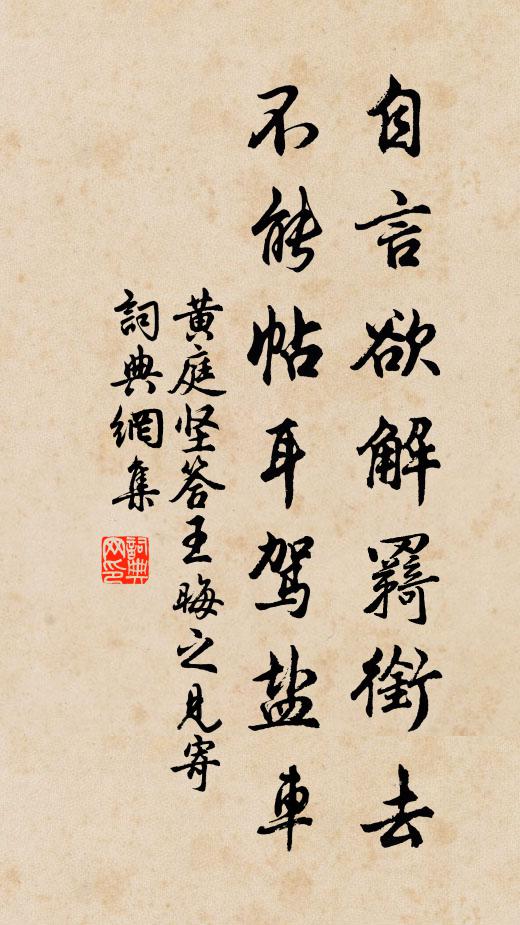 自言欲解羇銜去
不能帖耳駕盐車
黄庭坚答王晦之見寄
詞典網集
詞典网印